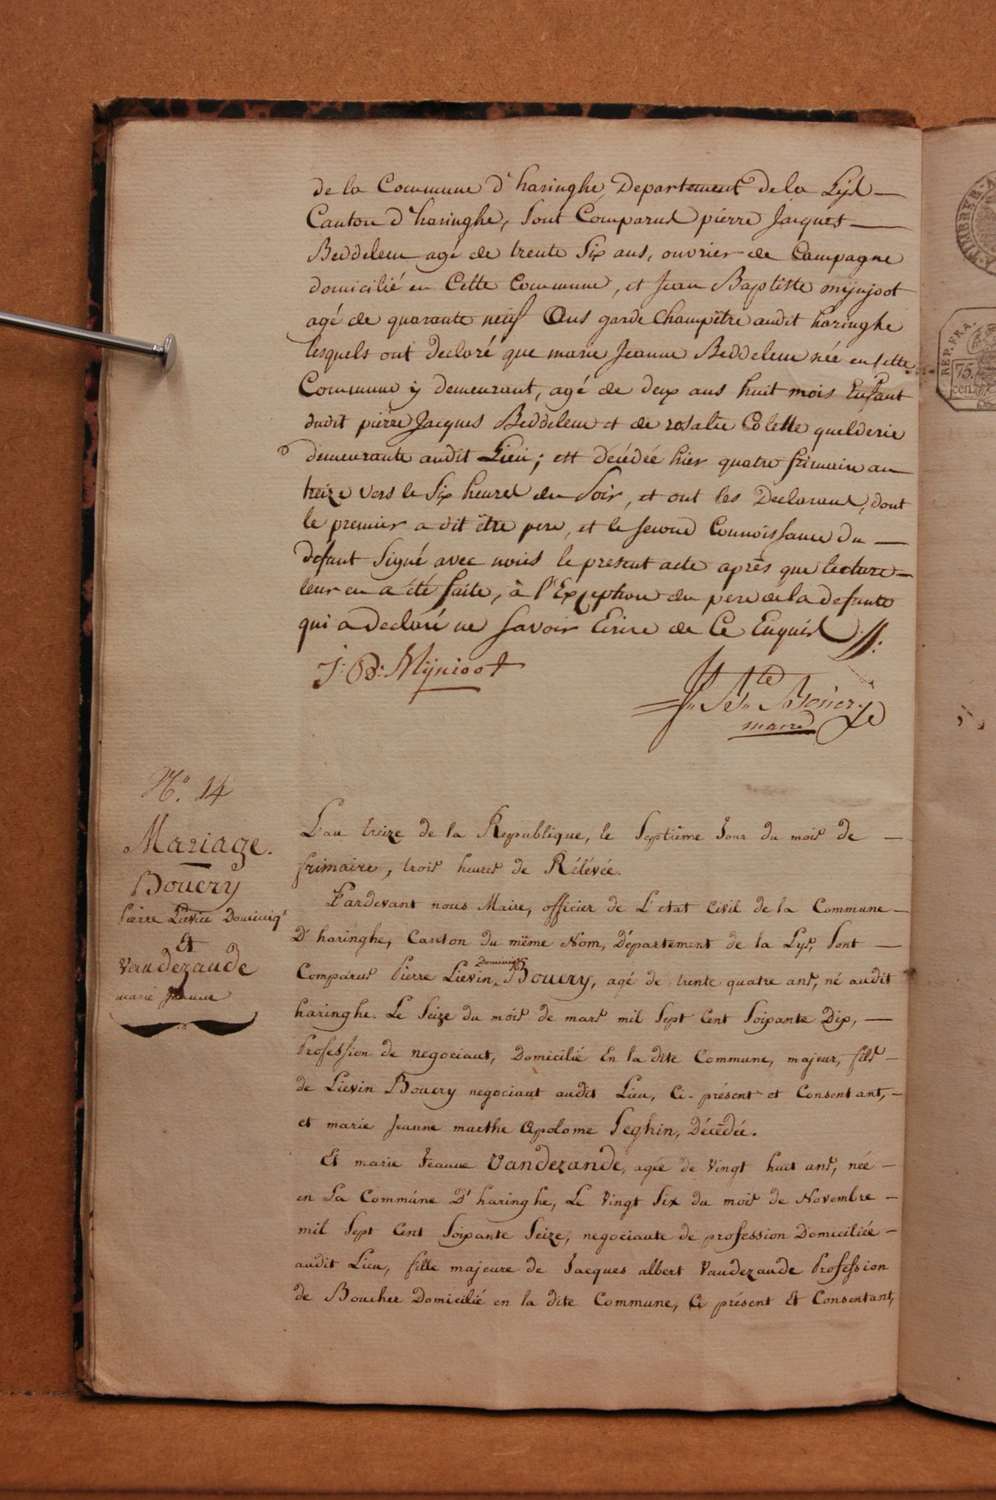 de la Commune d'haringhe, Departement de la Lijs
Canton d'haringhe, sont Comparus pierre Jacques
Beddeleem agé de trente Six ans, ouvrier de Campagne
domicilié en Cette Commune, et Jean Baptiste mijnjoot
agé de quarante neuf Ans garde Champêtre audit haringhe
lesquels ont declaré que marie Jeanne Beddeleem née en Cette
Commune ij demeurant, agé de deux ans huit mois Enfant
dudit pierre Jacques Beddeleem et de rosalie Colette quelderie
demeurante audit Lieu; est décédée hier quatre frimaire an
treize vers le Six heures du Soir, et ont les Declarans, dont
le premier a dit être pere, et le second Connoissance du
defunt Signé avec nous le present acte après que lecture
leur en a été faite, à l'Exception du pere de la defunte
qui a Declaré ne savoir Ecrire de Ce Enquis
J. B. Mijnioot
maire
N.° 14
Mariage.
Bouery
Pierre Lievin Dominiq'
Et
Vandezande
marie Jeanne
L'an treize de la Republique, le Septième Jour du mois de
frimaire, trois heures de Rélevée.
Pardevant nous Maire, officier de L'etat Civil de la Commune
D'haringhe, Canton du même Nom, Département de la Lys, sont
Dominiq
Comparus Pierre Lievin, Bouery, agé de trente quatre ans, né audit
haringhe. Le Seize du mois de mars mil Sept Cent Soixante Dix,
Profession de negociant, Domicilié En la dite Commune, majeur, fils
de Lievin Bouery negociant audit Lieu, Ci-présent et Consentant,
et marie Jeanne marthe Apolome Seghin, Décédée.
Et marie Jeanne Vandezande, agée de Vingt huit ans, née
en La Commúne D'haringhe, Le Vingt Six du mois de Novembre
mil Sept Cent Soixante Seize, negociante de profession Domiciliée
audit Lieu, fille majeure de Jacques albert Vandezande Profession
de Boucher Domicilié en la dite Commune, Ci présent Et Consentant,
REP. FRA.
75.
cen